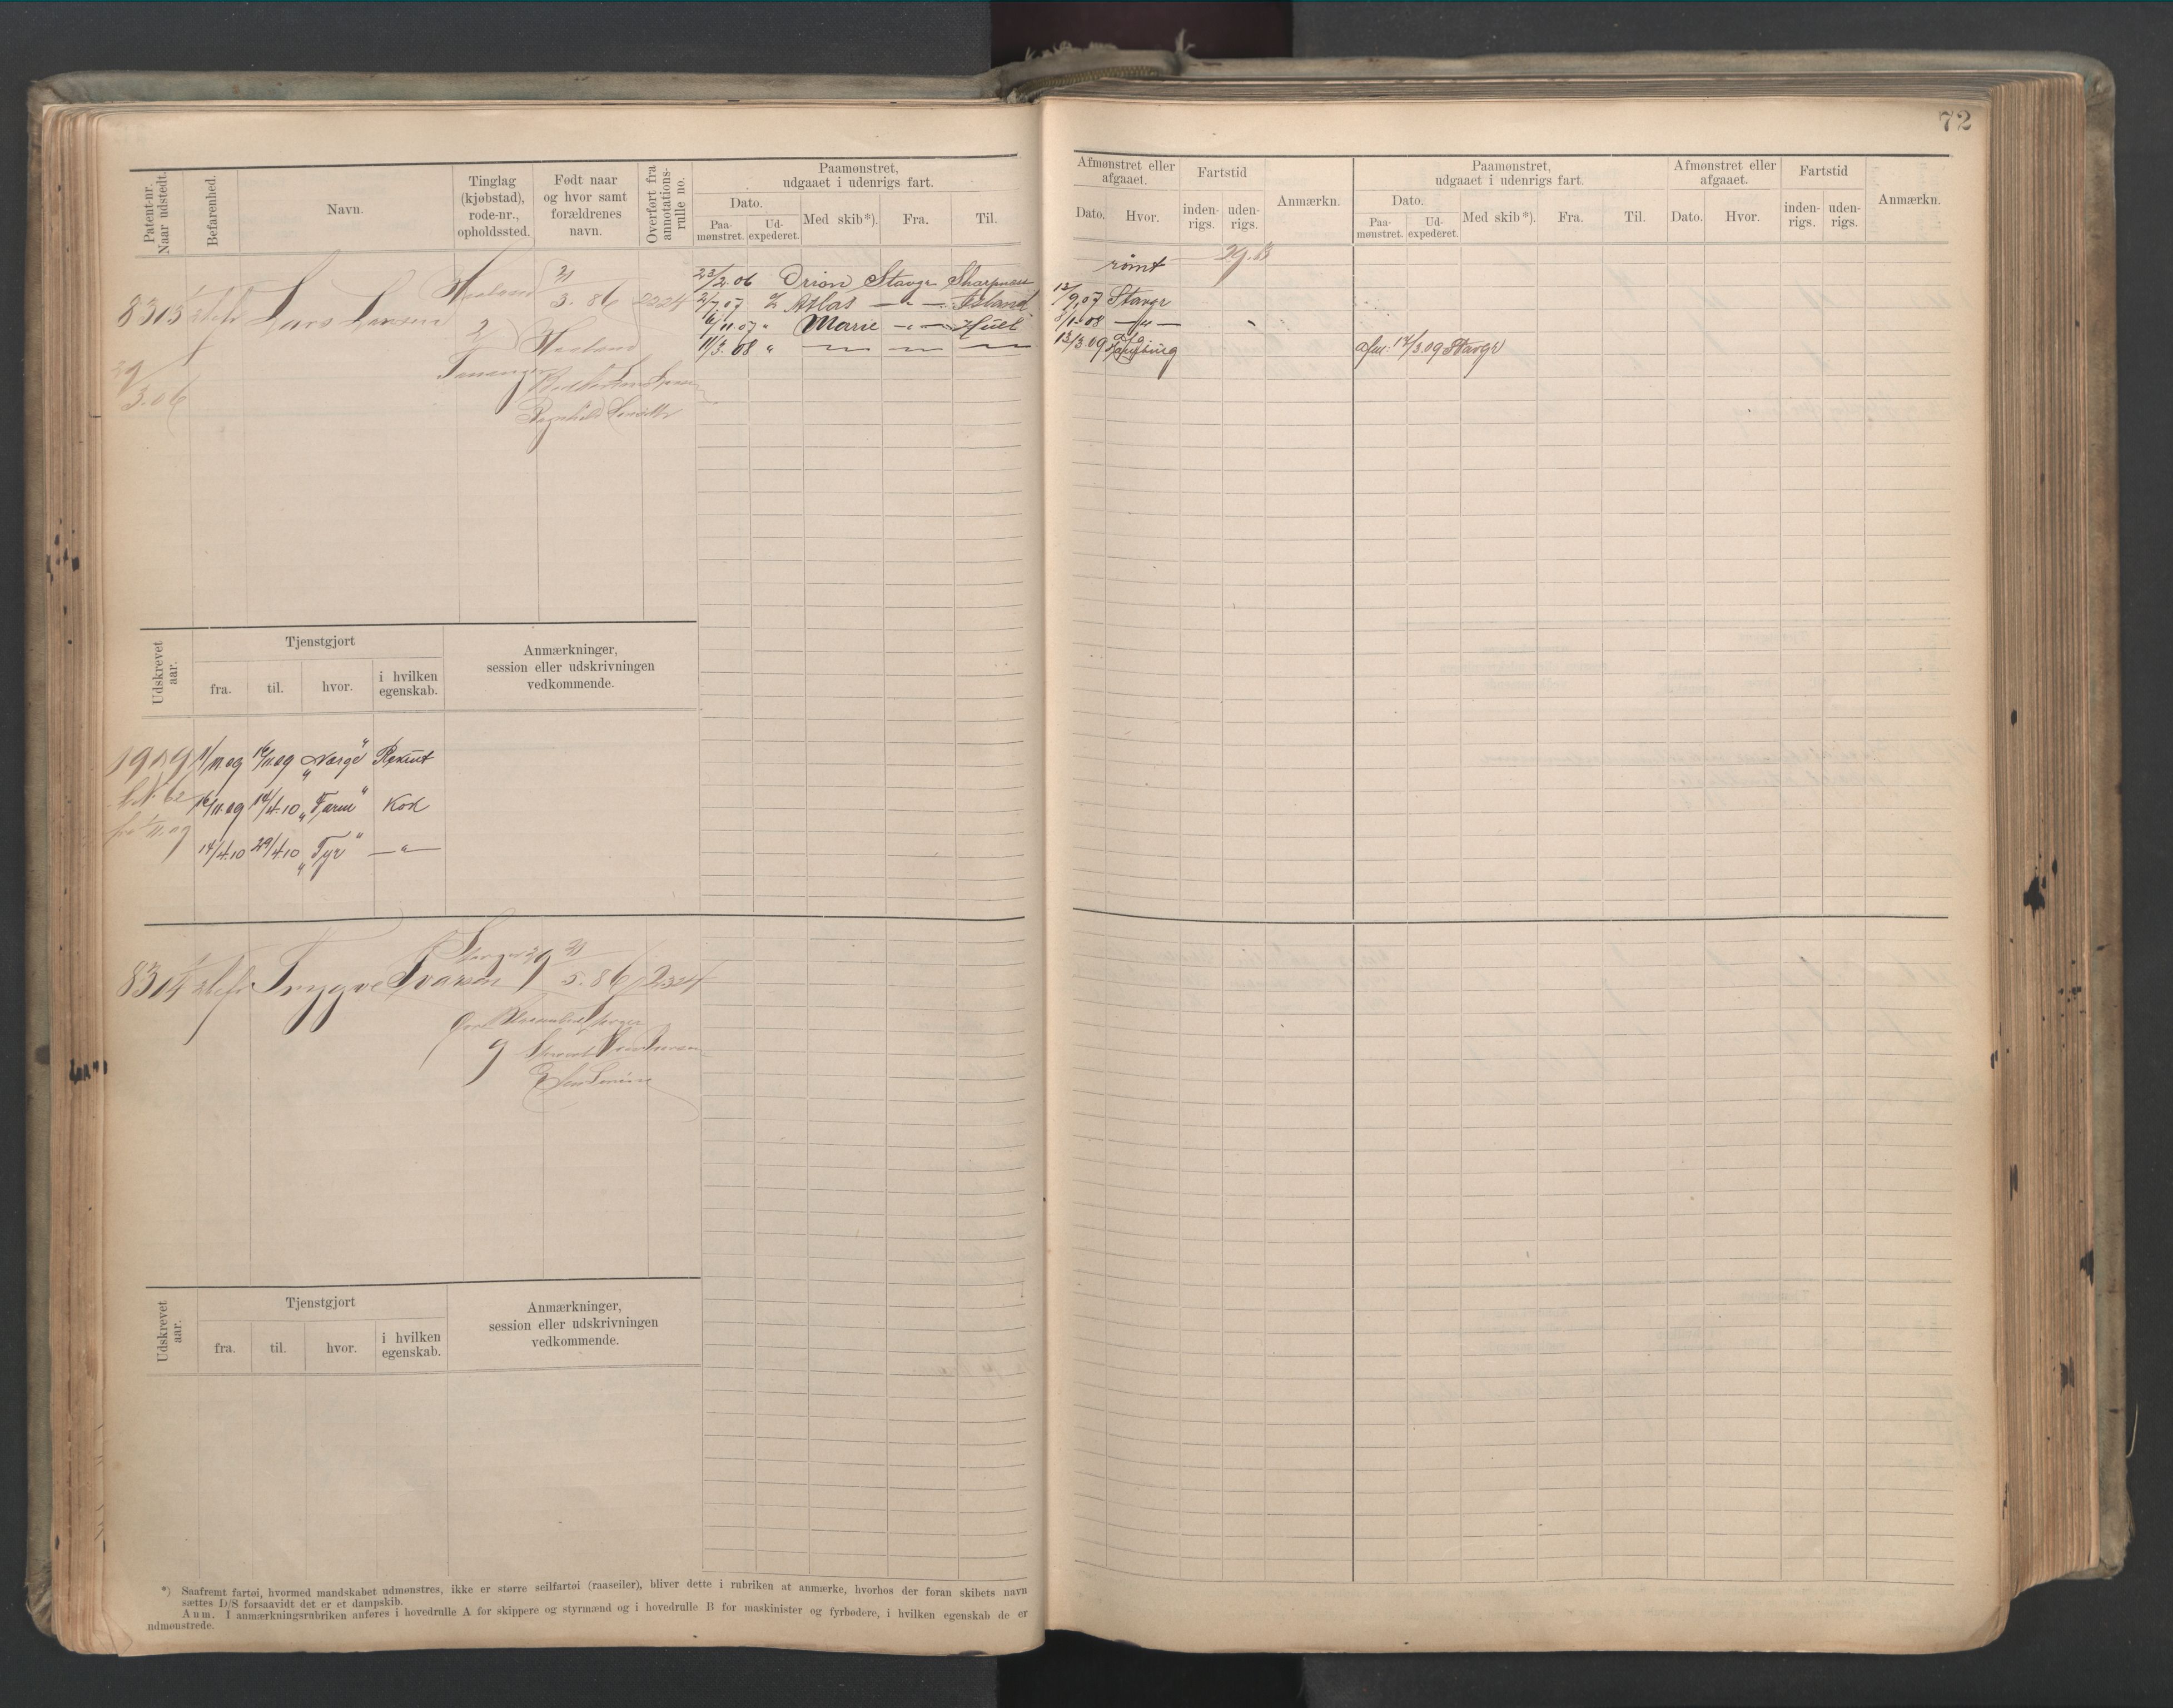 72
Patent-nr. Naar udstedt.
Befarenhed.
Navn.
Tinglag (kjøbstad), rode-nr., opholdssted.
Født naar og hvor samt forældrenes navn.
Overført fra annotations-rulle no.
Paamønstret, udgaaet i udenrigs fart.
Dato.
Paa-mønstret.
Ud-expederet.
Med skib*).
Fra.
Til.
Afmønstret eller afgaaet.
Dato.
Hvor.
Fartstid
inden-rigs.
uden-rigs.
Anmærkn.
Paamønstret, udgaaet i udenrigs fart.
Dato.
Paa-mønstret.
Ud-expederet.
Med skib*).
Fra.
Til.
Afmønstret eller afgaaet.
Dato.
Hvor.
Fartstid
inden-rigs.
uden-rigs.
Anmærkn.
8303 Lars Larsen 2/3. 86
Haaland
Tananger
3.06
23/2.06 Orion Stavgr rømt
2/7.07 Atlas — " — Island 12/9.07 Stavgr
6/11.07 " Marie — " — Hull 8/1-08 — " —
11/3.08 " — — — 13/3.09 Hamburg afm: 17/3.09 Stavgr
Udskrevet aar.
Tjenstgjort
fra.
til.
hvor.
i hvilken egenskab.
Anmærkninger, session eller udskrivningen vedkommende.
1909 11/11.09 16/11.09 „Norge" Rekrut
16/11.09 14/4.10 „Farm" Kok
14/4.10 29/4.10 „Tyr" — " —
8304 Trygve Ivarsen 5. 86 2324
Udskrevet aar.
Tjenstgjort
fra.
til.
hvor.
i hvilken egenskab.
Anmærkninger, session eller udskrivningen vedkommende.
*) Saafremt fartøi, hvormed mandskabet udmønstres, ikke er større seilfartøi (raaseiler), bliver dette i rubriken at anmærke, hvorhos der foran skibets navn
sættes D/S forsaavidt det er et dampskib.
Anm. I anmærkningsrubriken anføres i hovedrulle A for skippere og styrmænd og i hovedrulle B for maskinister og fyrbødere, i hvilken egenskab de er
udmønstrede.